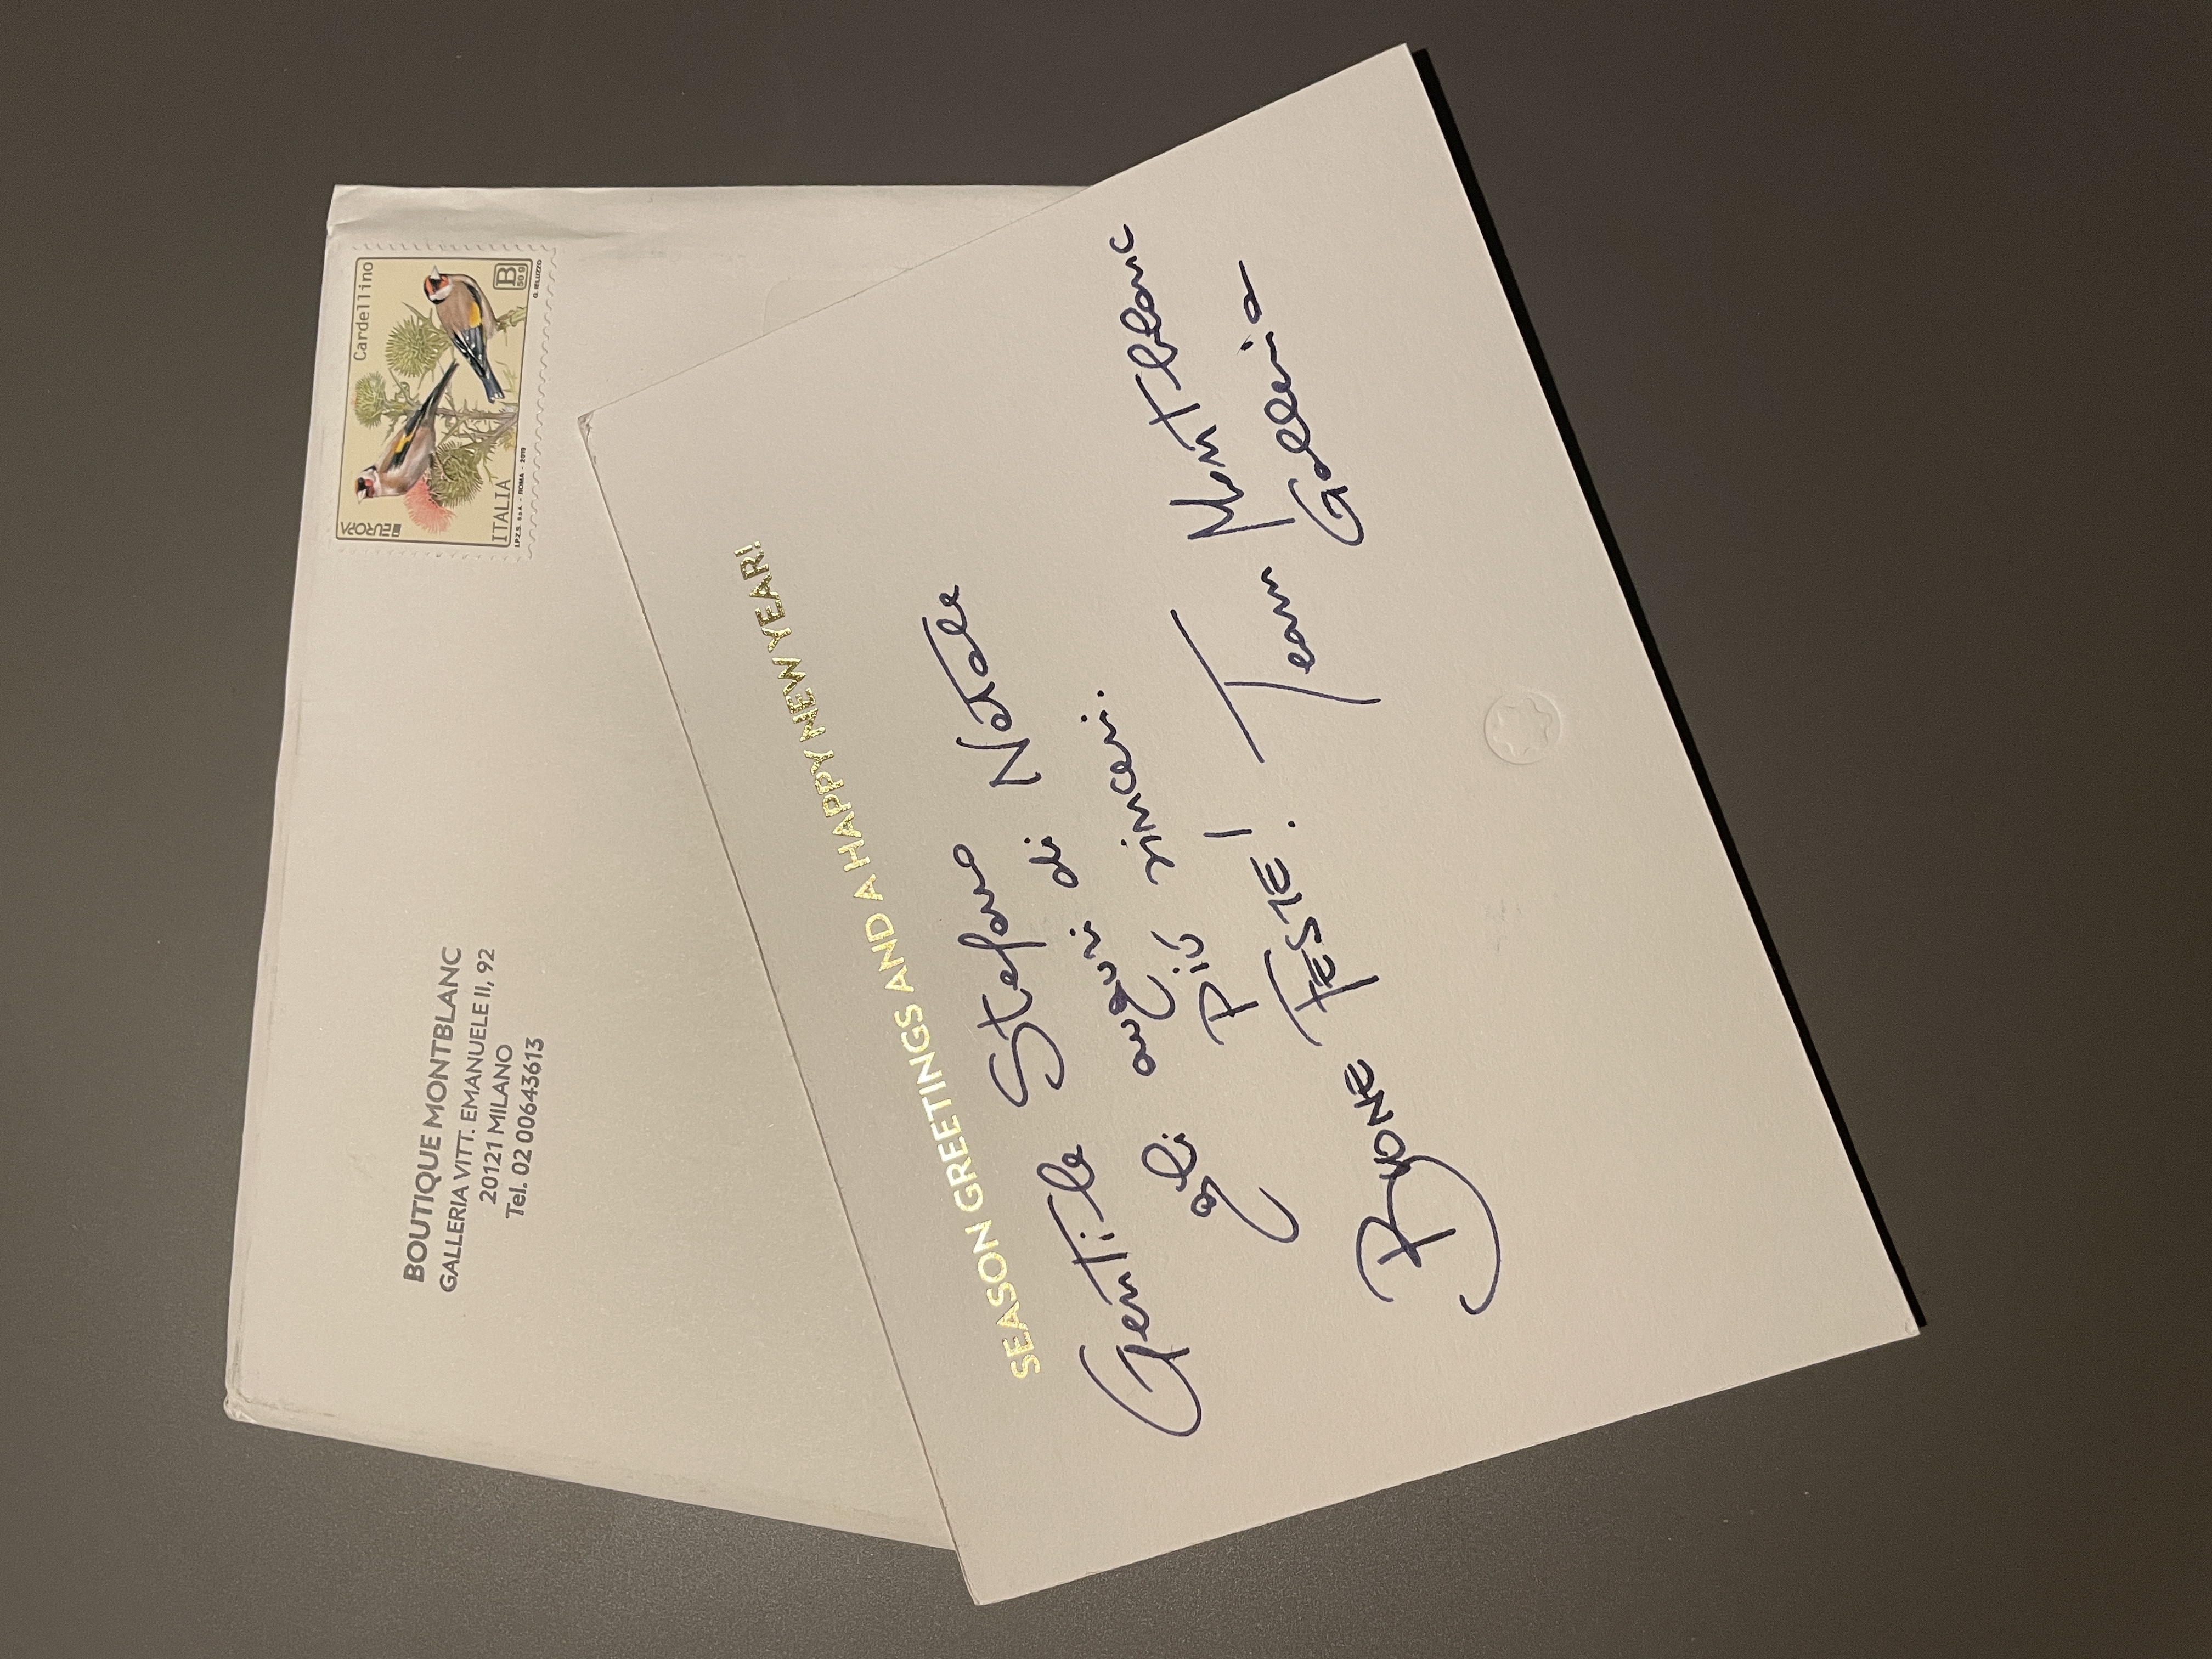 Cardellino
B
50 g
G. IELUZZO
EUROPA
ITALIA
I.P.Z.S. S.p.A. - ROMA - 2019
BOUTIQUE MONTBLANC
GALLERIA VITT. EMANUELE II, 92
20121 MILANO
Tel. 02 00643613
SEASON GREETINGS AND A HAPPY NEW YEAR!
Gentile Stefano
gli auguri di Natale
più sinceri.
BUONE FESTE!
Team Montblanc
Galleria